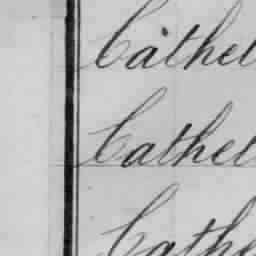 Cathel
Cathel
Cathe